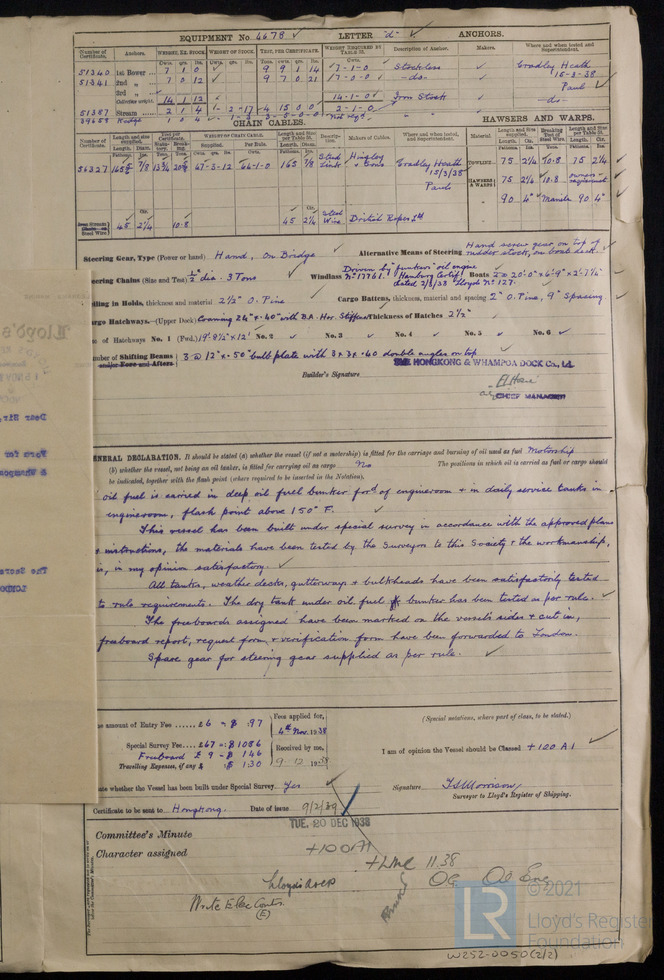 EQUIPMENT No. 4678 LETTER "d" ANCHORS.
Number of Certificate. Anchors. WEIGHT, EX. STOCK. WEIGHT OF STOCK. TEST, PER CERTIFICATE. WEIGHT REQUIRED BY TABLE 22. Description of Anchor. Makers. Where and when tested and Superintendent.
Cwts. qrs. lbs. Cwts. qrs. lbs. Tons. cwts. qrs. lbs.
51340 1st Bower 7 1 0 9 9 1 14 7-1-0 Stockless Cradley Heath
51341 2nd " 7 0 12 9 7 0 21 7-0-0 -do- 15-1-38
3rd " Paul
Collective weight 14 1 12 14-1-0 Iron Stock -do-
51387 Stream 2 1 4 -2-17 4 15 0 0 2-1-0
39659 Kedge 1 0 4
CHAIN CABLES. HAWSERS AND WARPS.
Number of Certificate. Length and size supplied. Test per Certificate. WEIGHT OF CHAIN CABLE. Length and size per Table 22. Description. Makers of Cables. Where and when tested, and Superintendent. Material Length and Size supplied. Breaking Test of Steel Wire. Length and size per Table 22.
56327 165 7/8 67-3-12 64-1-0 165 7/8 Steel Link Hingley & Sons Cradley Heath TOWLINE 75 2¼ 10.8 75 2¼
15/3/38 HAWSERS & WARPS 75 2¼ 10.8
Paul " 90 4" Manila 90 4"
Steel Wire 45 2¼ 10.8 45 2¼ Steel Wire British Ropes Ltd
Steering Gear, Type (Power or hand) Hand, on Bridge Alternative Means of Steering Hand screw gear on top of rudder stock, on boat deck.
Steering Chains (Size and Test) ½" dia. 3 Tons Windlass Driven by "Junkers" oil engine No 17761. Hamburg Certif. dated 2/3/38 Lloyds No 127. Boats 2 @ 20'0" x 6'-9" x 2'-7½"
Ceiling in Holds, thickness and material 2½" O. Pine Cargo Battens, thickness, material and spacing 2" O. Pine, 9" Spacing.
Cargo Hatchways.—(Upper Deck) Coaming 24" x .40" with B.A. Hor. Stiffener Thickness of Hatches 2½"
of Hatchways No. 1 (Fwd.) 19'-8½" x 12' No. 2 No. 3 No. 4 No. 5 No. 6
Number of Shifting Beams 3 @ 12" x .50" bulb plate with 3 x 3 x .40 double angles on top
and/or Fore and Afters
THE HONGKONG & WHAMPOA DOCK Co., Ld.
Builder's Signature
CHIEF MANAGER
GENERAL DECLARATION. It should be stated (a) whether the vessel (if not a motorship) is fitted for the carriage and burning of oil used as fuel Motorship
(b) whether the vessel, not being an oil tanker, is fitted for carrying oil as cargo No The positions in which oil is carried as fuel or cargo should
be indicated, together with the flash point (where required to be inserted in the Notation).
oil fuel is carried in deep oil fuel bunker ford of engineroom & in daily service tanks in
engineroom, flash point above 150° F.
This vessel has been built under special survey in accordance with the approved plans
instructions, the materials have been tested by the Surveyors to this Society & the workmanship,
is, in my opinion satisfactory.
All tanks, weather decks, gutterways & bulkheads have been satisfactorily tested
to rule requirements. The dry tank under oil fuel bunker has been tested as per rule.
The freeboards assigned have been marked on the vessel's sides & cut in,
freeboard report, request form & verification form have been forwarded to London.
Spare gear for steering gear supplied as per rule.
The amount of Entry Fee ...... £6 = $ .97 Fees applied for, 4th Nov. 1938 (Special notations, where part of class, to be stated.)
Special Survey Fee.... £67 = $ 1086
Freeboard £ 9 = $ 146 Received by me, I am of opinion the Vessel should be Classed +100 A1
Travelling Expenses, if any $ : $ 130 9-12-1938
State whether the Vessel has been built under Special Survey Yes Signature T.S. Morrison,
Surveyor to Lloyd's Register of Shipping.
Certificate to be sent to Hongkong. Date of issue 9/2/39
Committee's Minute TUE. 20 DEC 1938
Character assigned +100A1
+LMC 11.38
Lloyds A&CP OG Oil Eng
Write Elec Contr.
(E)
Dear Sir,
Form for
& Whampoa
The Secre
LONDON
LR
© 2021
Lloyd's Register
Foundation
W252-0050(2/2)